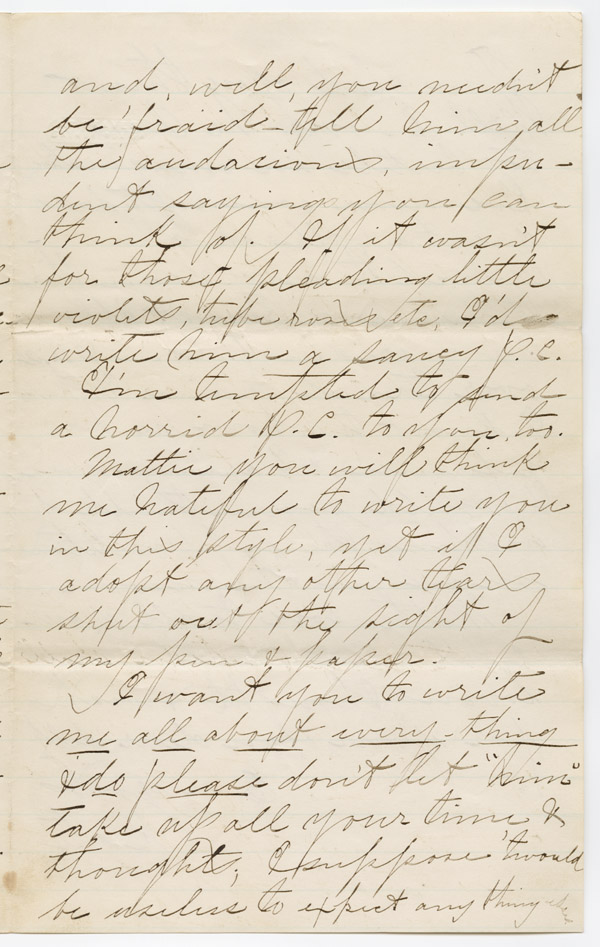 and, well, you needn't
be 'fraid – tell him all
the audacious, impu-
dent sayings you can
think of. If it wasn't
for those pleading little
violets, tube roses etc. I'd
write him a saucy P.C.
I'm tempted to send
a horrid P.C. to you, too.
Mattie you will think
me hateful to write you
in this style, yet if I
adopt any other tears
shut out the sight of
my pen & paper.
I want you to write
me all about every-thing
& do please don't let "him"
take up all your time &
thoughts; I suppose 'twould
be useless to expect any thing